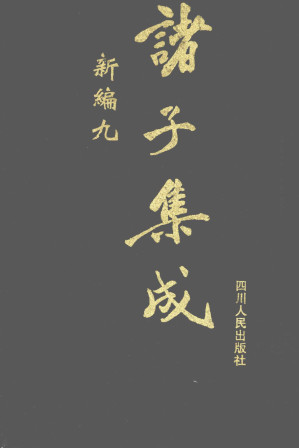 諸子集成
新編九
四川人民出版社